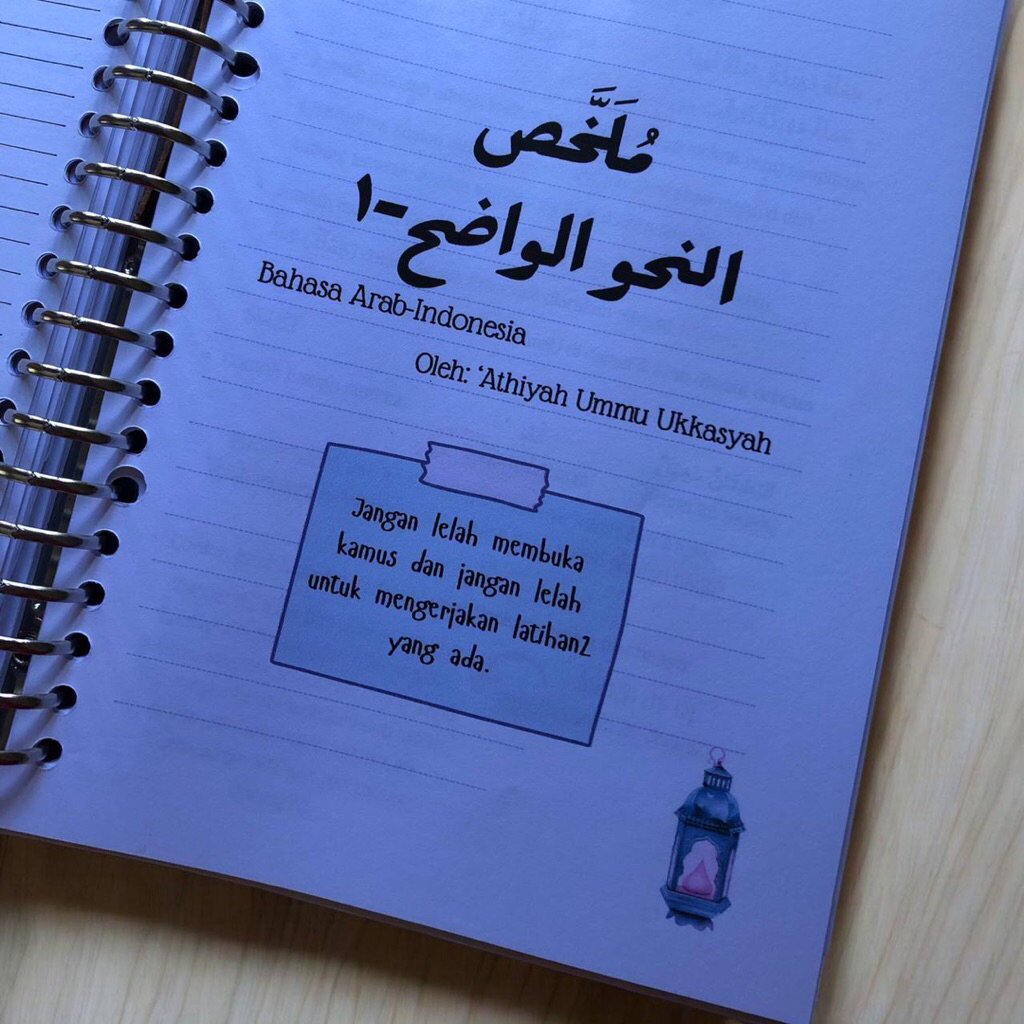 مُلَخَّص
النحو الواضح-١
Bahasa Arab-Indonesia
Oleh: ‘Athiyah Ummu Ukkasyah
Jangan lelah membuka
kamus dan jangan lelah
untuk mengerjakan latihan2
yang ada.